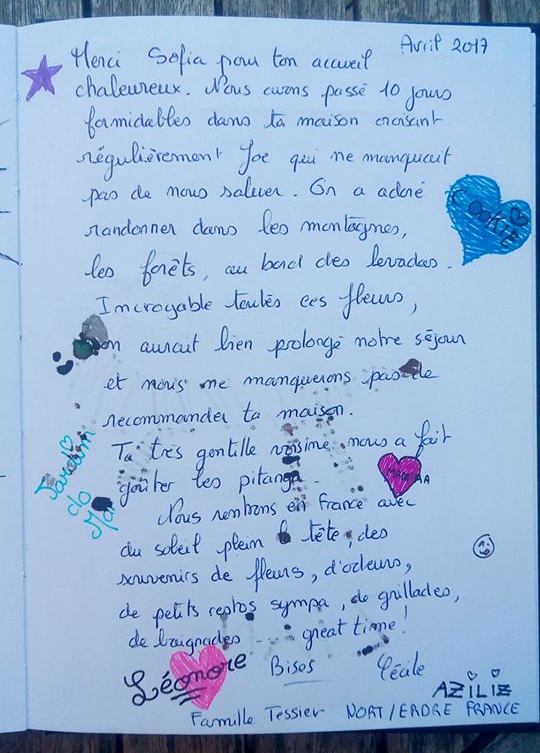 Avril 2017
Merci Sofia pour ton accueil
chaleureux. Nous avons passé 10 jours
formidables dans ta maison croisant
régulièrement Joe qui ne manquait
pas de nous saluer. On a adoré
COOKIE
randonner dans les montagnes,
les forêts, au bord des levadas.
Incroyable toutes ces fleurs,
on aurait bien prolongé notre séjour
et nous ne manquerons pas de
recommander ta maison.
Ta très gentille voisine nous a fait
goûter les pitanga.
Jardim
do
Mar
Nous rentrons en France avec
du soleil plein la tête, des
souvenirs de fleurs, d'odeurs,
de petits restos sympa, de grillades,
de baignades --- great time!
Léonore
Bises
Cécile
AZiLiZ
Famille Tessier NORT/ERDRE FRANCE